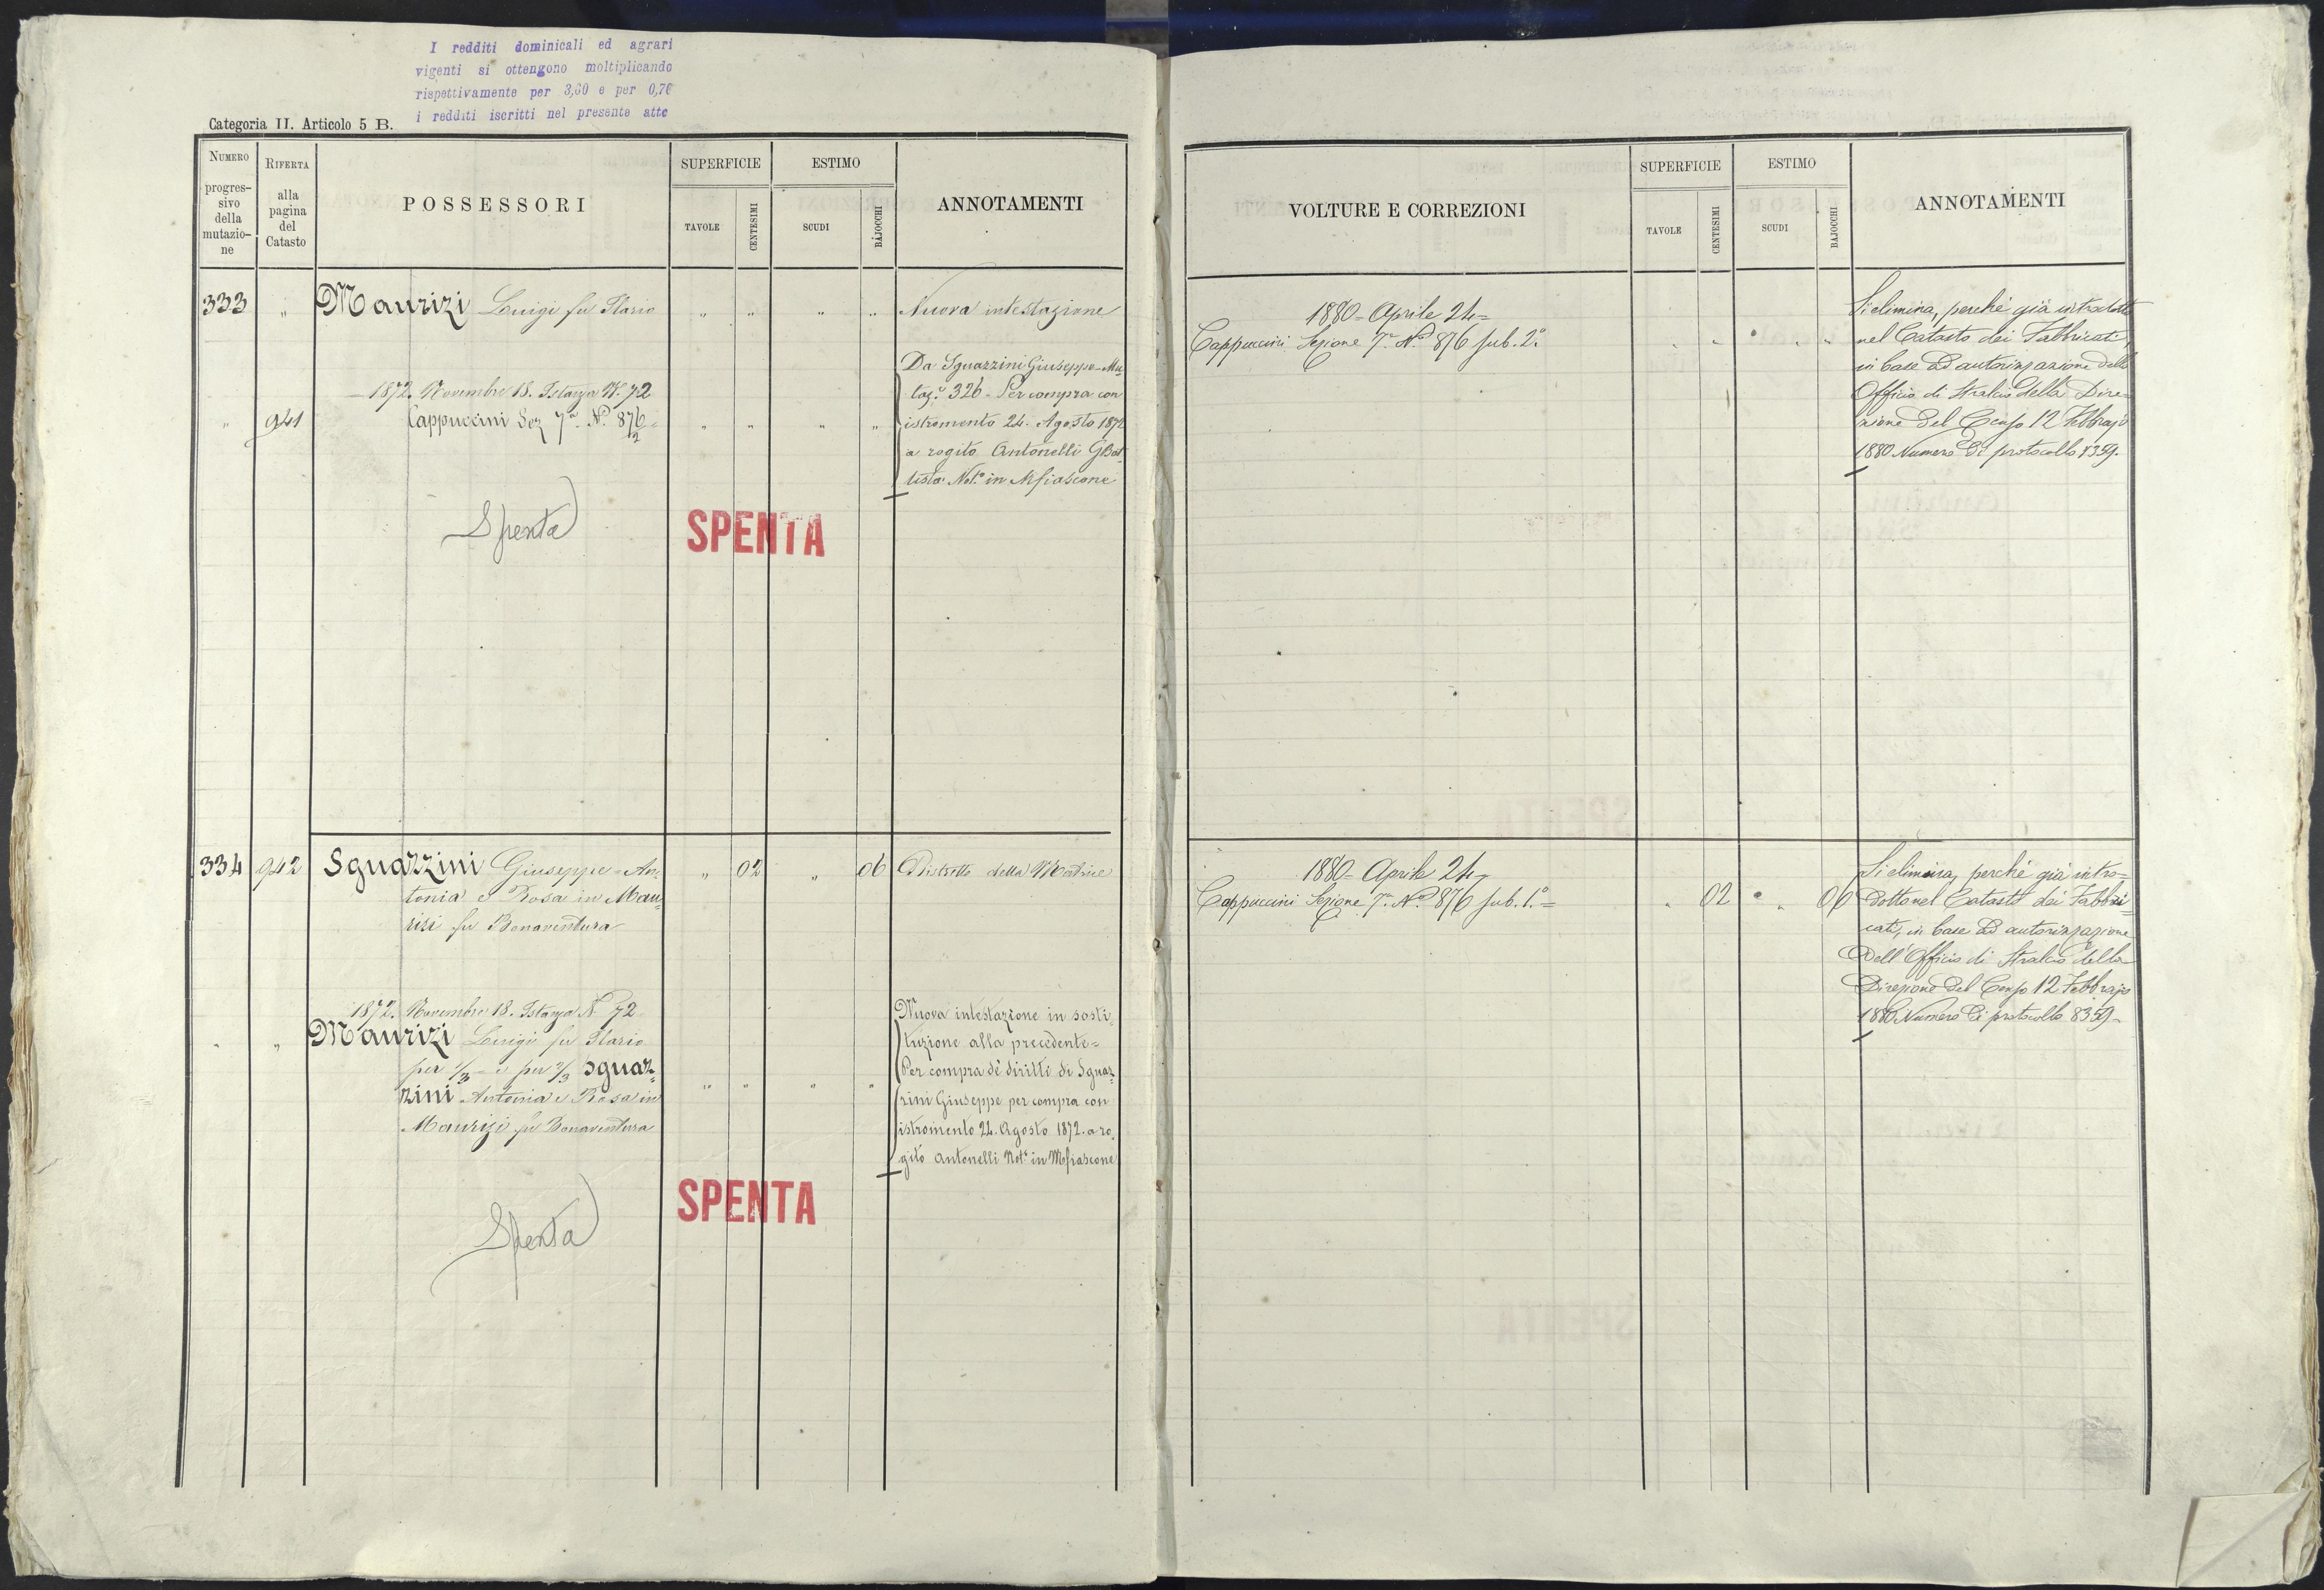 I redditi dominicali ed agrari
vigenti si ottengono moltiplicando
rispettivamente per 3,60 e per 0,76
i redditi iscritti nel presente atto
Categoria II. Articolo 5 B.
NUMERO progres-sivo della mutazio-ne
RIFERTA alla pagina del Catasto
POSSESSORI
SUPERFICIE
TAVOLE
CENTESIMI
ESTIMO
SCUDI
BAJOCCHI
ANNOTAMENTI
333 " Maurizi Luigi fu Ilario " " " " Nuova intestazione
1872. Novembre 18. Istanza N. 72
" 941 Cappuccini Sez 7a N° 876/2 = " " " "
Da Sguazzini Giuseppe - Mu-
taz.e 326 - Per compra con
istromento 24. Agosto 1872
a rogito Antonelli GBat-
tista Not.o in Mfiascone
Spenta
SPENTA
334 942 Sguazzini Giuseppe - An-
tonia e Rosa in Mau-
rizi fu Bonaventura
" 02 " 06 Distretto della Matrice
1872. Novembre 18. Istanza N. 72
" " Maurizi Luigi fu Ilario
per 1/3 - e per 2/3 Sguaz-
zini Antonia e Rosa in
Maurizi fu Bonaventura
" " " "
Nuova intestazione in sosti-
tuzione alla precedente =
Per compra de diritti di Sguaz-
zini Giuseppe per compra con
istromento 24. Agosto 1872. a ro-
gito Antonelli Not.o in Mfiascone
SPENTA
Spenta
VOLTURE E CORREZIONI
SUPERFICIE
TAVOLE
CENTESIMI
ESTIMO
SCUDI
BAJOCCHI
ANNOTAMENTI
1880 = Aprile 24 =
Cappuccini Sezione 7a N° 876 sub. 2° " " " "
Si elimina, perché già introdotto
nel Catasto dei Fabbricati,
in base ad autorizzazione dello
Officio di Stralcio della Dire-
zione del Censo 12 Febbrajo
1880 Numero di protocollo 8359.
1880 - Aprile 24 -
Cappuccini Sezione 7a N° 876 sub. 1° = " 02 " 06
Si elimina, perché già intro-
dotto nel Catasto dei Fabbri-
cati, in base ad autorizzazione
dell'Officio di Stralcio della
Direzione del Censo 12 Febbrajo
1880 Numero di protocollo 8359 -